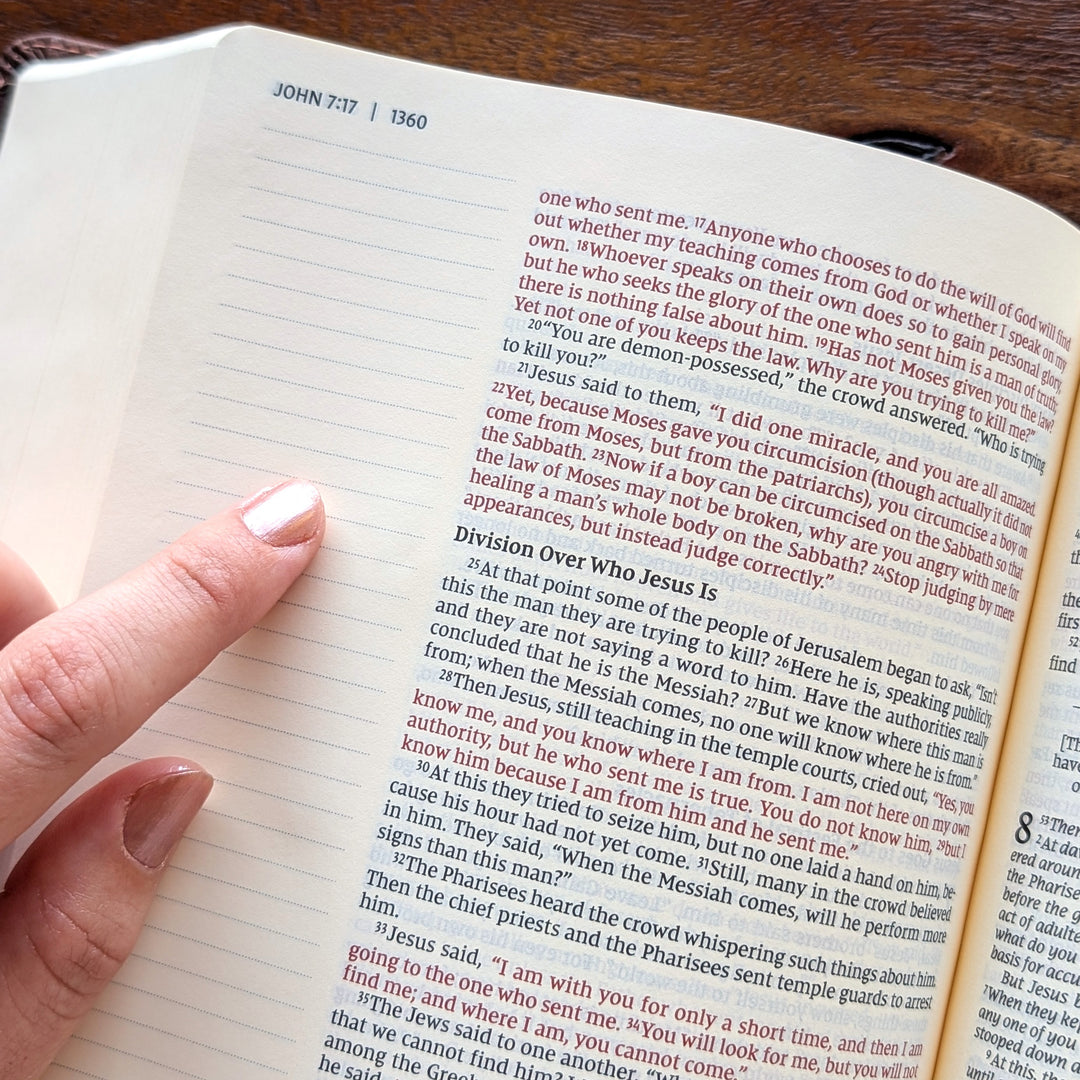 JOHN 7:17 | 1360
one who sent me. 17Anyone who chooses to do the will of God will find
out whether my teaching comes from God or whether I speak on my
own. 18Whoever speaks on their own does so to gain personal glory,
but he who seeks the glory of the one who sent him is a man of truth;
there is nothing false about him. 19Has not Moses given you the law?
Yet not one of you keeps the law. Why are you trying to kill me?”
20“You are demon-possessed,” the crowd answered. “Who is trying
to kill you?”
21Jesus said to them, “I did one miracle, and you are all amazed.
22Yet, because Moses gave you circumcision (though actually it did not
come from Moses, but from the patriarchs), you circumcise a boy on
the Sabbath. 23Now if a boy can be circumcised on the Sabbath so that
the law of Moses may not be broken, why are you angry with me for
healing a man’s whole body on the Sabbath? 24Stop judging by mere
appearances, but instead judge correctly.”
Division Over Who Jesus Is
25At that point some of the people of Jerusalem began to ask, “Isn’t
this the man they are trying to kill? 26Here he is, speaking publicly,
and they are not saying a word to him. Have the authorities really
concluded that he is the Messiah? 27But we know where this man is
from; when the Messiah comes, no one will know where he is from.”
28Then Jesus, still teaching in the temple courts, cried out, “Yes, you
know me, and you know where I am from. I am not here on my own
authority, but he who sent me is true. You do not know him, 29but I
know him because I am from him and he sent me.”
30At this they tried to seize him, but no one laid a hand on him, be-
cause his hour had not yet come. 31Still, many in the crowd believed
in him. They said, “When the Messiah comes, will he perform more
signs than this man?”
32The Pharisees heard the crowd whispering such things about him.
Then the chief priests and the Pharisees sent temple guards to arrest
him.
33Jesus said, “I am with you for only a short time, and then I am
going to the one who sent me. 34You will look for me, but you will not
find me; and where I am, you cannot come.”
35The Jews said to one another,
that we cannot find him?
among the
he said,
the
first
52
find
have
8 53Then
2At
ered around
the
before the
act of
what do you
basis for
But Jesus
7When they
any one of you
stooped down
9At this,
until